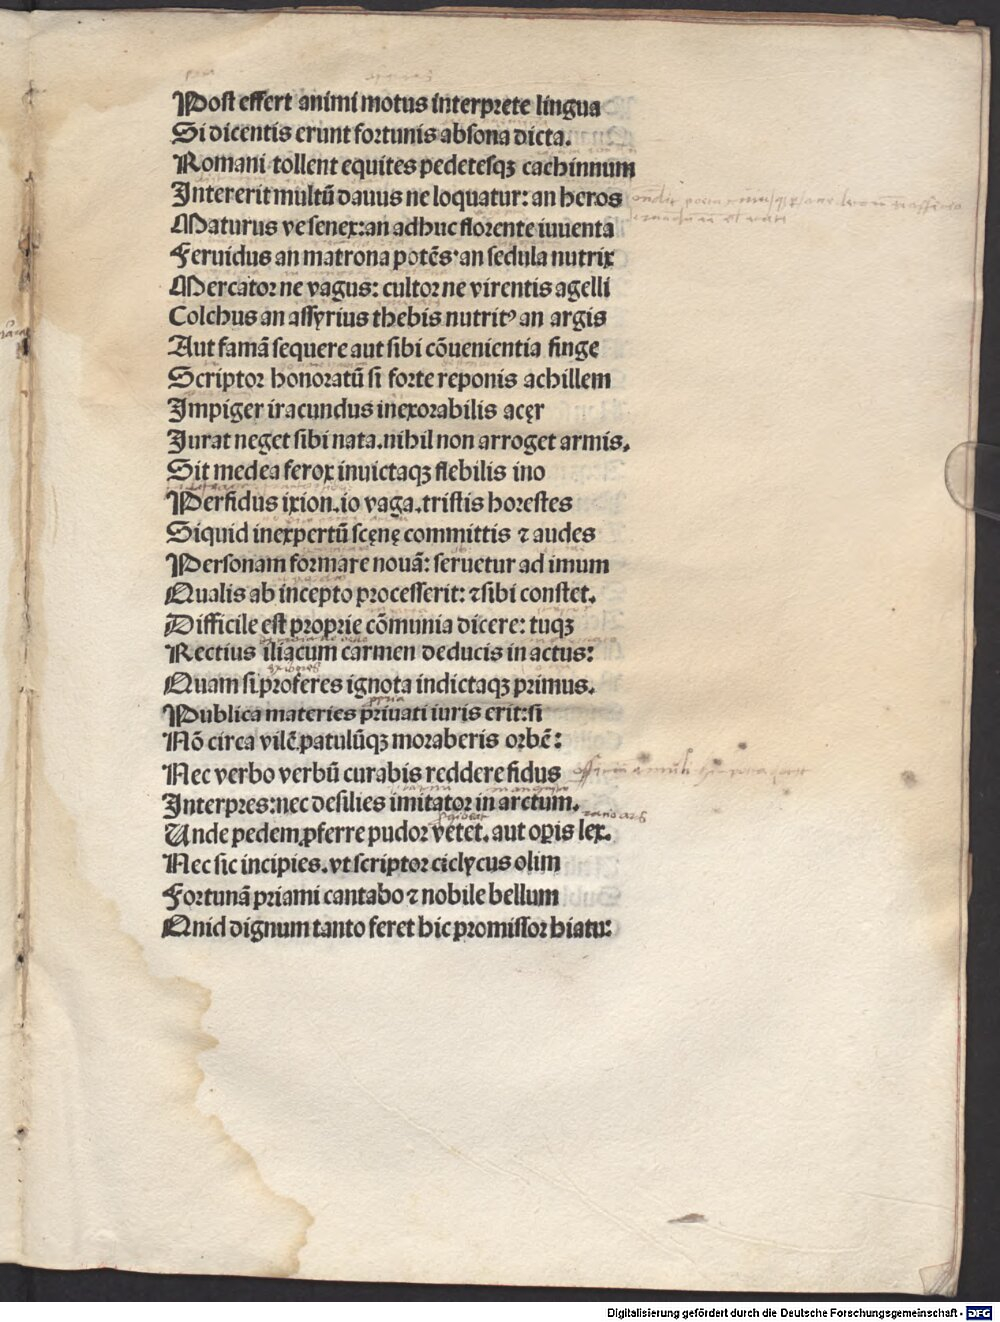 Post effert animi motus interprete lingua
Si dicentis erunt fortunis absona dicta.
Romani tollent equites pedetesqꝫ cachinnum
Intererit multū dauus ne loquatur: an heros
Maturus ve senex: an adhuc florente iuuenta
Feruidus an matrona potēs· an sedula nutrix
Mercator ne vagus: cultor ne virentis agelli
Colchus an assyrius thebis nutritꝰ an argis
Aut famā sequere aut sibi cōuenientia finge
Scriptor honoratū si forte reponis achillem
Impiger iracundus inexorabilis acęr
Jurat neget sibi nata. nihil non arroget armis.
Sit medea ferox inuictaqꝫ flebilis ino
Perfidus ixion. io vaga. tristis horestes
Siquid inexpertū scęnę committis ⁊ audes
Personam formare nouā: seruetur ad imum
Qualis ab incepto processerit: ⁊ sibi constet.
Difficile est proprie cōmunia dicere: tuqꝫ
Rectius iliacum carmen deducis in actus:
Quam si proferes ignota indictaqꝫ primus.
Publica materies priuati iuris erit: si
Nō circa vilē patulūqꝫ moraberis orbē:
Nec verbo verbū curabis reddere fidus
Interpres: nec desilies imitator in arctum.
Unde pedem ꝓferre pudor vetet. aut oꝑis lex.
Nec sic incipies. vt scriptor ciclycus olim
Fortunā priami cantabo ⁊ nobile bellum
Qnid dignum tanto feret hic promissor hiatu:
Digitalisierung gefördert durch die Deutsche Forschungsgemeinschaft - DFG